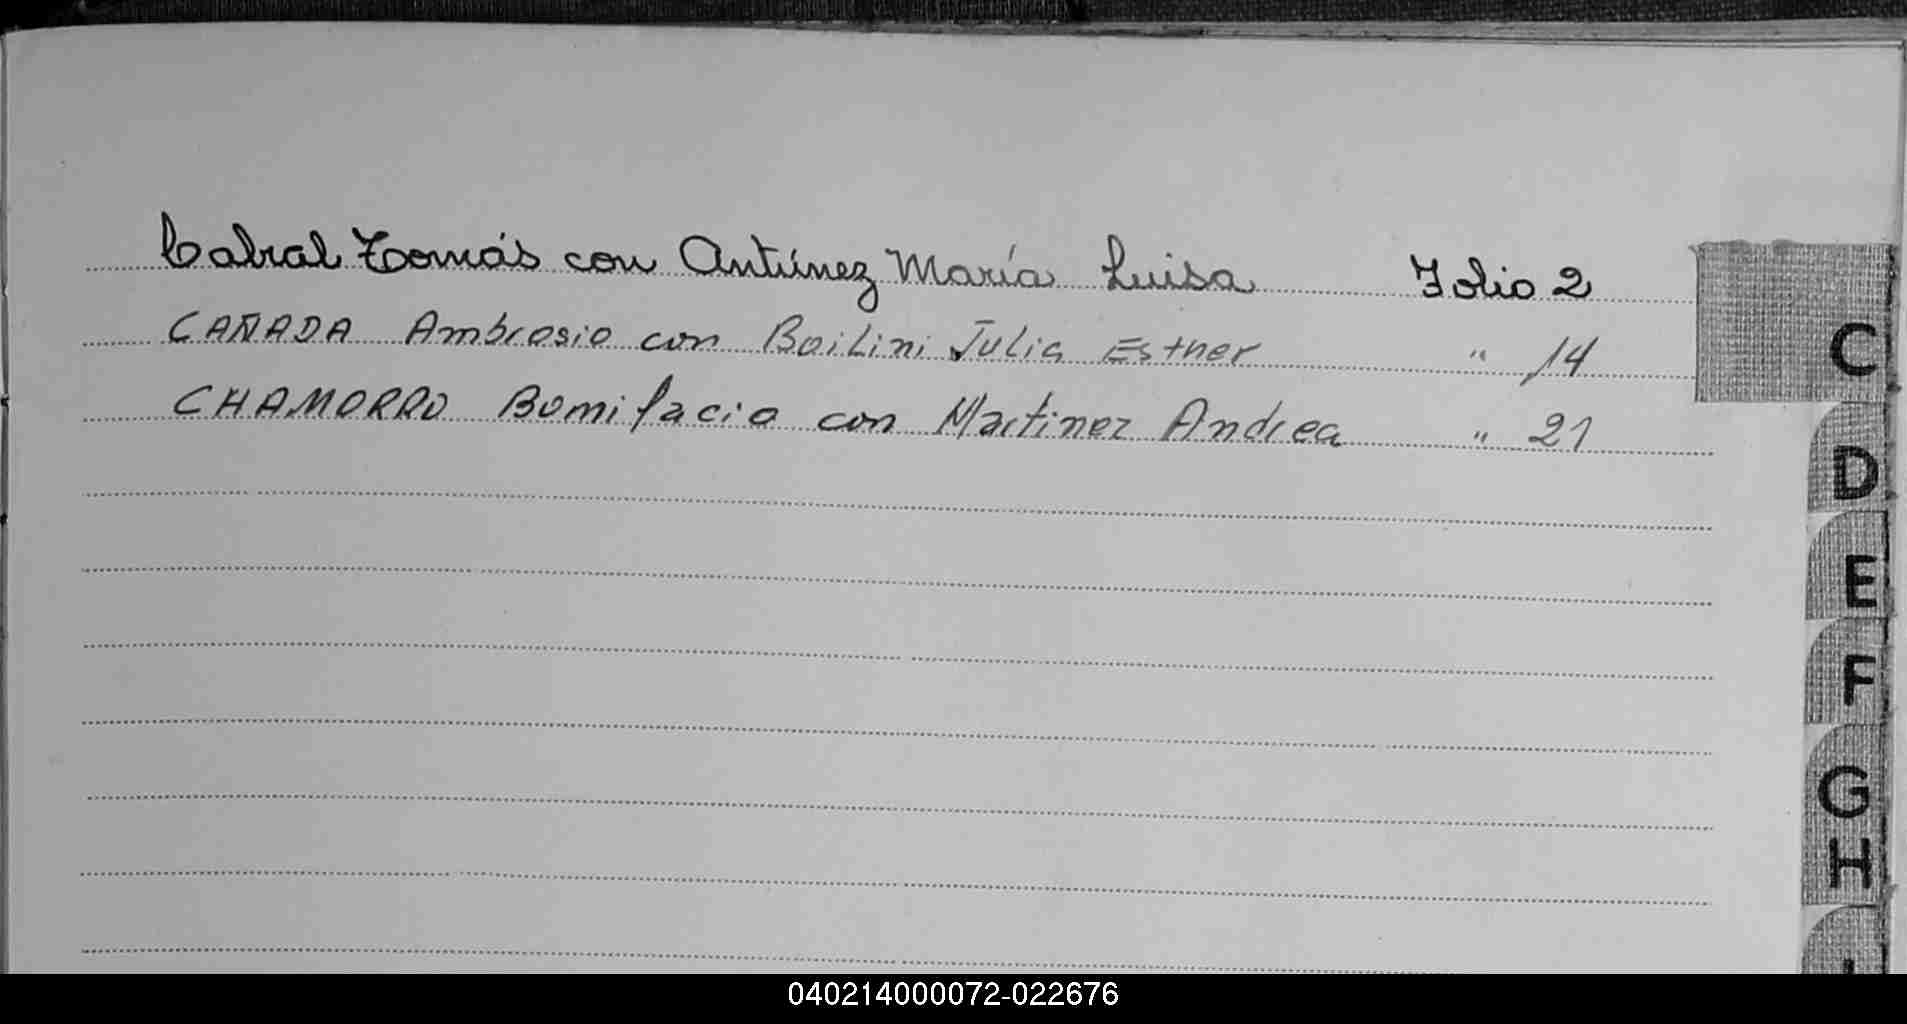 Cabral Tomás con Antúnez María Luisa Folio 2
CAÑADA Ambrosio con Boilini Julia Esther " 14
CHAMORRO Bonifacio con Martinez Andrea " 21
C
D
E
F
G
H
I
040214000072-022676